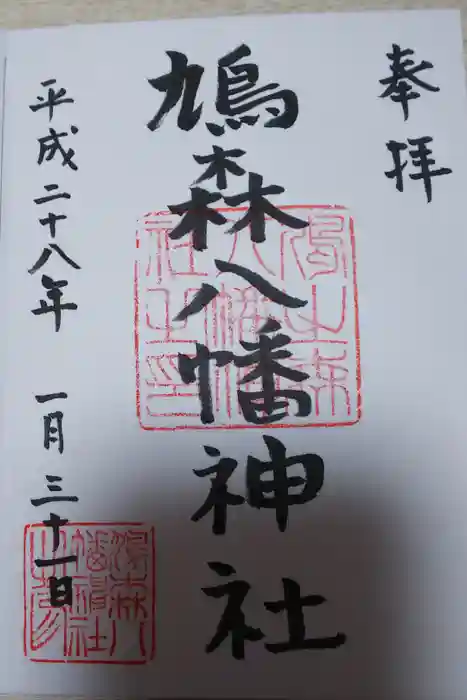 奉拝
鳩森八幡神社
平成二十八年 一月三十一日